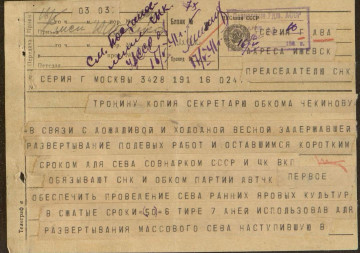 03 03
Бланк №
СССР
СЕРИЯ Г А В А
АДРЕСА ИЖЕВСК
СЕРИЯ Г МОСКВЫ 3428 191 16 0247
ПРЕДСЕДАТЕЛЮ СНК
ТРОНИНУ КОПИЯ СЕКРЕТАРЮ ОБКОМА ЧЕКИНОВУ
В СВЯЗИ С ДОЖДЛИВОЙ И ХОЛОДНОЙ ВЕСНОЙ ЗАДЕРЖАВШЕЙ
РАЗВЕРТЫВАНИЕ ПОЛЕВЫХ РАБОТ И ОСТАВШИМСЯ КОРОТКИМ
СРОКОМ ДЛЯ СЕВА СОВНАРКОМ СССР И ЦК ВКП
ОБЯЗЫВАЮТ СНК И ОБКОМ ПАРТИИ АВТЧК ПЕРВОЕ
ОБЕСПЕЧИТЬ ПРОВЕДЕНИЕ СЕВА РАННИХ ЯРОВЫХ КУЛЬТУР
В СЖАТЫЕ СРОКИ 6 ТИРЕ 7 ДНЕЙ ИСПОЛЬЗОВАВ ДЛЯ
РАЗВЕРТЫВАНИЯ МАССОВОГО СЕВА НАСТУПИВШУЮ В